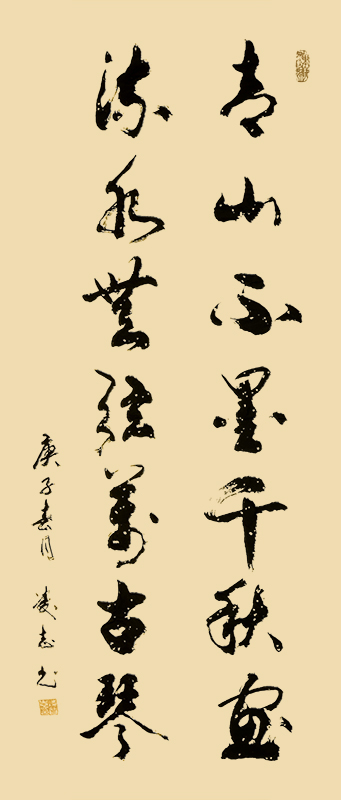 青山不墨千秋画
流水无弦万古琴
庚子春月 凌志光